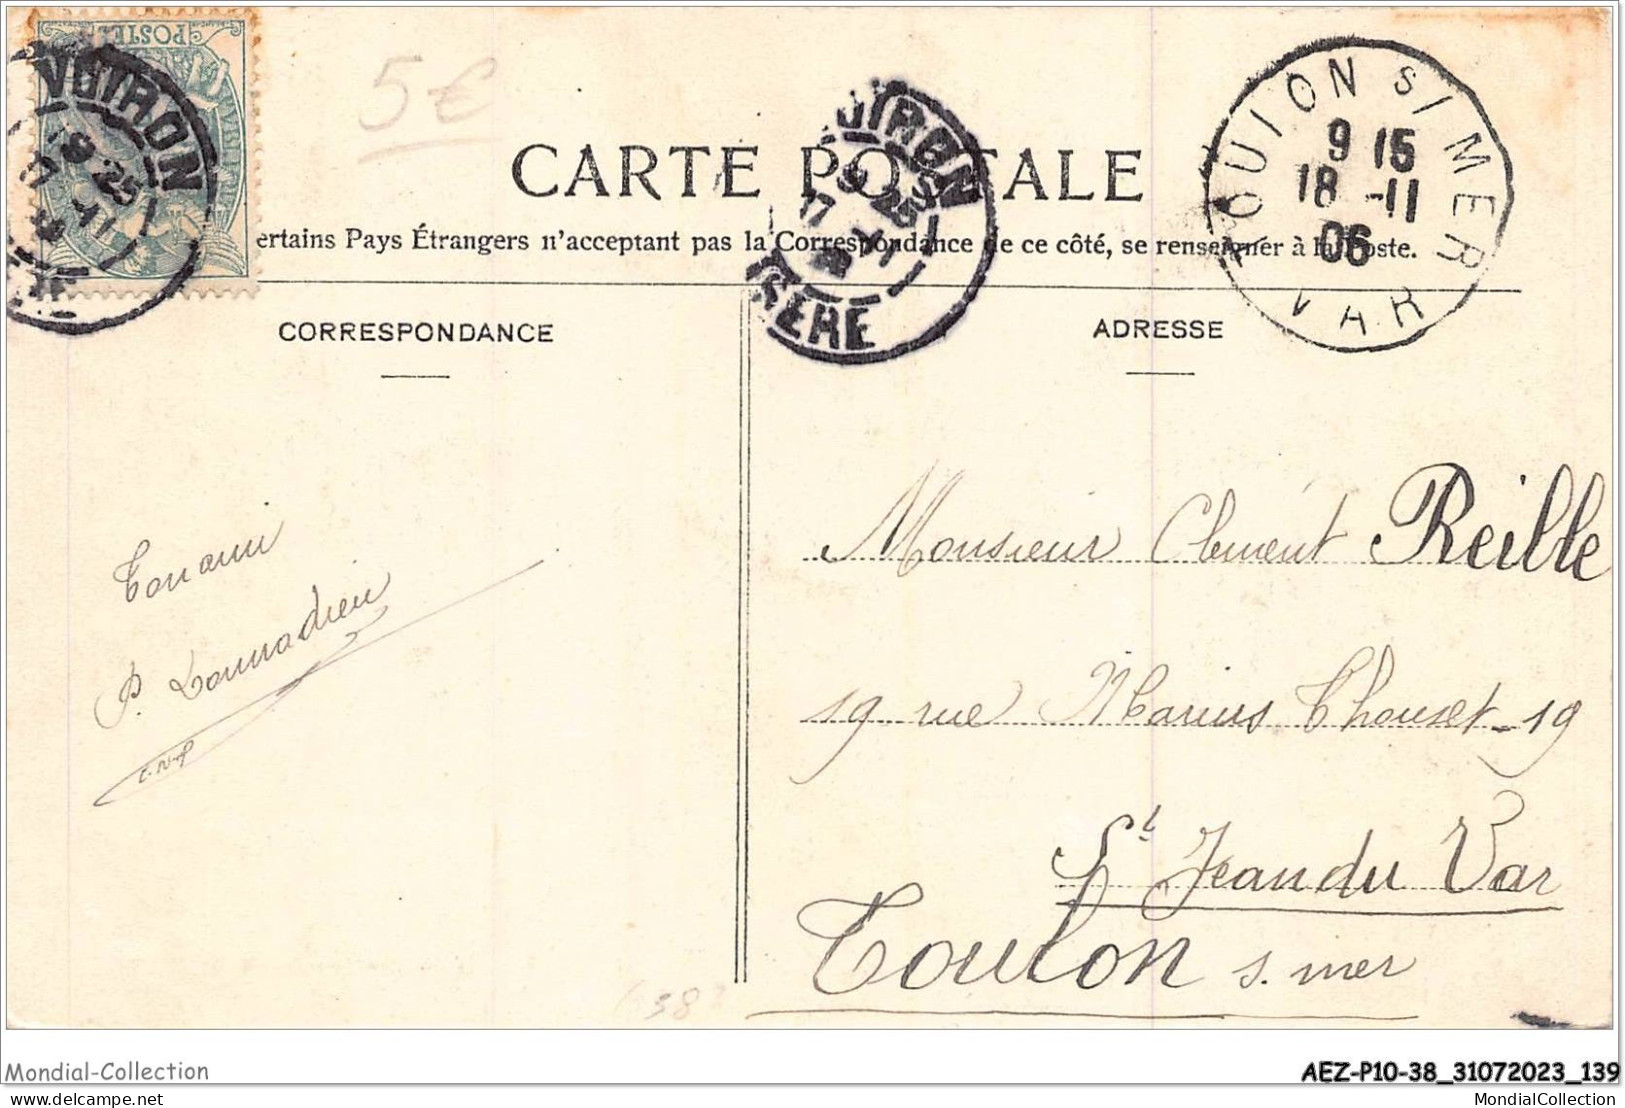 POSTES
VOIRON
19 25
17 -11
5€
CARTE POSTALE
VOIRON
19 25
17 -11
ISERE
TOULON S/ MER
9 15
18 -11
06
VAR
ertains Pays Étrangers n'acceptant pas la Correspondance de ce côté, se renseigner à la Poste.
CORRESPONDANCE
ADRESSE
Ton ami
P. Donnadieu
Monsieur Clement Reille
19 rue Marius Chouset 19
St Jean du Var
Toulon s. mer
38
Mondial-Collection
AEZ-P10-38_31072023_139
delcampe.net
MondialCollection